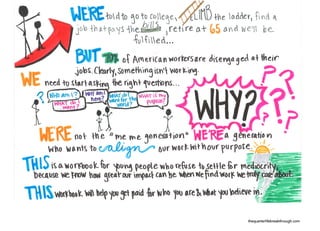 WERE told to go to college, CLIMB the ladder, find a
job that pays the bills, retire at 65 and we'll be
fulfilled...
BUT 70% of American workers are disengaged at their
jobs. Clearly, something isn't working.
WE need to start asking the right questions...
? Who Am I? Why am I here? What do I want for the world? What is my purpose? ?
What do I want?
WHY? ? ? ? ? ?
WE'RE not the "me me generation" WE'RE a generation
who wants to align our work with our purpose.
THIS is a workbook for young people who refuse to settle for mediocrity
because we know how great our impact can be when we find work we truly care about.
THIS workbook will help you get paid for who you are & what you believe in.
thequarterlifebreakthrough.com